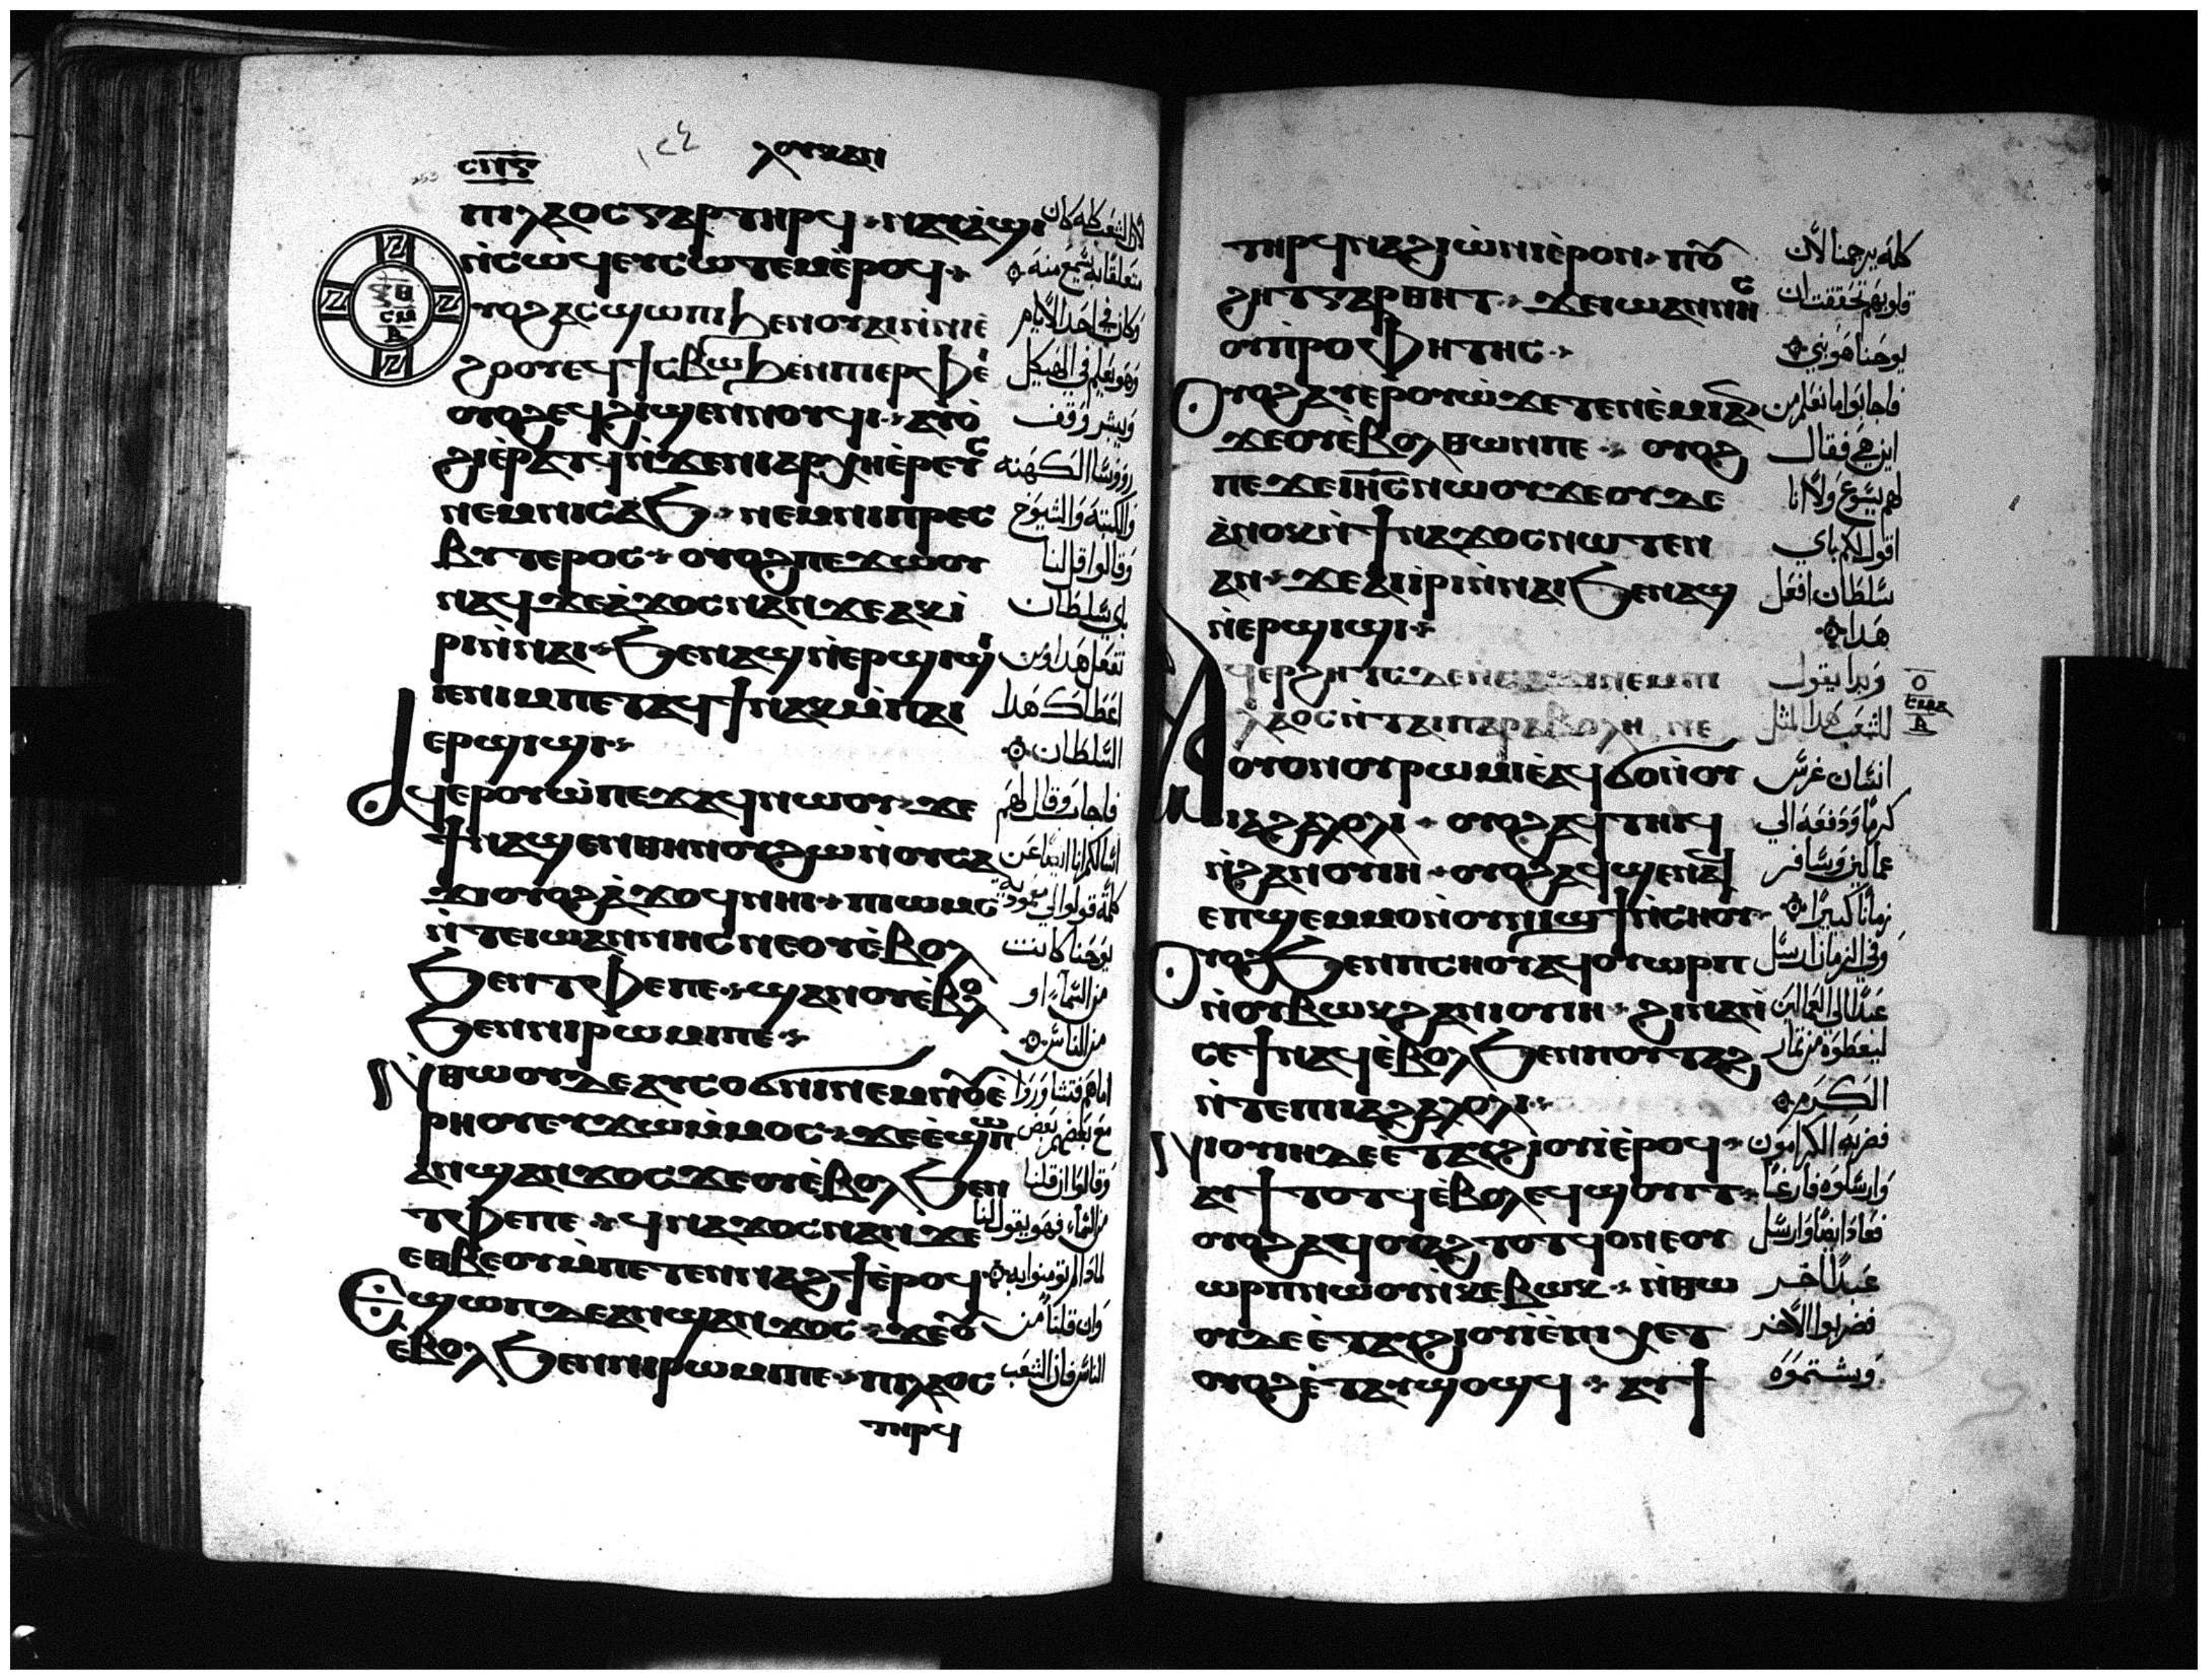 ⲥⲡⲋ
١٤٤
ⲗⲟⲩⲕⲁⲛ
ⲡⲓⲗⲁⲟⲥ ⲅⲁⲣ ⲧⲏⲣϥ ⲛⲁⲩⲁ̀ϣⲓ
ⲛ̀ⲥⲱϥ ⲉⲩⲥⲱⲧⲉⲙ ⲉ̀ⲣⲟϥ
ⲟⲩⲟϩ ⲁⲥϣⲱⲡⲓ ϧⲉⲛ ⲟⲩⲁⲓ ⲛ̀ⲛⲓⲉ̀
ϩⲟⲟⲩ ⲉϥϯⲥⲃⲱ ϧⲉⲛ ⲡⲓⲉⲣⲫⲉⲓ
ⲟⲩⲟϩ ⲉϥϩⲓϣⲉⲛⲛⲟⲩϥⲓ ⲁⲩⲟ̀
ϩⲓ ⲉ̀ⲣⲁⲧϥ ⲛ̀ϫⲉ ⲛⲓⲁⲣⲭⲏⲉ̀ⲣⲉⲩⲥ
ⲛⲉⲙ ⲛⲓⲥⲁϧ ⲛⲉⲙ ⲛⲓⲡⲣⲉⲥ
ⲃⲩⲧⲉⲣⲟⲥ ⲟⲩⲟϩ ⲡⲉϫⲱⲟⲩ
ⲛⲁϥ ϫⲉ ⲁ̀ϫⲟⲥ ⲛⲁⲛ ϫⲉ ⲁⲕⲓ̀
ⲣⲓ ⲛ̀ⲛⲁⲓ ϧⲉⲛ ⲁϣ ⲛ̀ⲉⲣϣⲓϣⲓ
ⲓⲉ ⲛⲓⲙ ⲡⲉⲧⲁϥϯ ⲛⲁⲕ ⲙ̀ⲡⲁⲓ
ⲉⲣϣⲓϣⲓ
ⲁϥⲉⲣⲟⲩⲱ̀ ⲡⲉϫⲁϥ ⲛⲱⲟⲩ ϫⲉ
ϯⲛⲁϣⲉⲛ ⲑⲏⲛⲟⲩ ϩⲱ ⲛ̀ⲟⲩⲥⲁ
ϫⲓ ⲟⲩⲟϩ ⲁ̀ϫⲟϥ ⲛⲏⲓ ⲡⲓⲱⲙⲥ
ⲛ̀ⲧⲉ ⲓⲱⲁⲛⲛⲏⲥ ⲛⲉ ⲟⲩⲉ̀ⲃⲟⲗ
ϧⲉⲛ ⲧⲫⲉ ⲡⲉ ϣⲁⲛ ⲟⲩⲉ̀ⲃⲟⲗ
ϧⲉⲛ ⲛⲓⲣⲱⲙⲓ ⲡⲉ
ⲛ̀ⲑⲱⲟⲩ ⲇⲉ ⲁⲩⲥⲟϭⲛⲓ ⲛⲉⲙ ⲛⲟⲩⲉ̀
ⲣⲏⲟⲩ ⲉⲩϫⲱ ⲙ̀ⲙⲟⲥ ϫⲉ ⲉ̀ϣⲱⲡ
ⲁⲛϣⲁⲛϫⲟⲥ ϫⲉ ⲟⲩⲉ̀ⲃⲟⲗ ϧⲉⲛ
ⲧⲫⲉ ⲡⲉ ϥⲛⲁϫⲟⲥ ⲛⲁⲛ ϫⲉ
ⲉⲑⲃⲉⲟⲩ ⲙ̀ⲡⲉⲧⲉⲛⲛⲁϩϯ ⲉ̀ⲣⲟϥ
ⲉϣⲱⲡ ⲇⲉ ⲁⲛϣⲁⲛϫⲟⲥ ϫⲉ ⲟⲩ
ⲉⲃⲟⲗ ϧⲉⲛ ⲛⲓⲣⲱⲙⲓ ⲡⲉ ⲡⲓⲗⲁⲟⲥ
ⲧⲏⲣϥ
لان الشعب كله كان
متعلقا به يسمع منه
وكان في احد الايام
وهو يعلم في الهيكل
ويبشر وقف
رؤوسا الكهنه
والكتبه والشيوخ
وقالوا قل لنا
باي سلطان
تفعل هدا ومن
اعطاك هدا
السلطان
فاجاب وقال لهم
اسالكم انا ايضا عن
كلمة قولوا لي معمودية
يوحنا كانت
من السماء او
من الناس
اما هم فتشاوروا
مع بعضهم بعض
وقالوا ان قلنا
من السماء فهو يقول لنا
لمادا لم تومنوا به
وان قلنا من
الناس فان الشعب
ⲧⲏⲣϥ ⲛⲁϩⲓⲱ̀ⲛⲓ ⲉ̀ⲣⲟⲛ ⲡⲟⲩ
ϩⲏⲧ ⲅⲁⲣ ⲑⲏⲧ ϫⲉ ⲓⲱⲁⲛⲛⲏⲥ
ⲟⲩⲡ̀ⲣⲟⲫⲏⲧⲏⲥ
ⲟⲩⲟϩ ⲁⲩⲉⲣⲟⲩⲱ̀ ϫⲉ ⲧⲉⲛⲉ̀ⲙⲓ ⲁⲛ
ϫⲉ ⲟⲩⲉ̀ⲃⲟⲗ ⲑⲱⲛ ⲡⲉ ⲟⲩⲟϩ
ⲡⲉϫⲉ ⲓⲏⲥ ⲛⲱⲟⲩ ϫⲉ ⲟⲩⲇⲉ
ⲁ̀ⲛⲟⲕ ⲛ̀ϯⲛⲁϫⲟⲥ ⲛⲱⲧⲉⲛ
ⲁⲛ ϫⲉ ⲁⲓⲓ̀ⲣⲓ ⲛ̀ⲛⲁⲓ ϧⲉⲛ ⲁϣ
ⲛ̀ⲉⲣϣⲓϣⲓ
ⲁϥⲉⲣϩⲏⲧⲥ ⲇⲉ ⲛ̀ϫⲱ ⲙ̀ⲡⲓ
ⲗⲁⲟⲥ ⲛ̀ⲧⲁⲓⲡⲁⲣⲁⲃⲟⲗⲏ ⲛⲉ
ⲟⲩⲟⲛ ⲟⲩⲣⲱⲙⲓ ⲉ̀ⲁϥϭⲟ ⲛ̀ⲟⲩ
ⲓⲁϩⲁⲗⲟⲗⲓ ⲟⲩⲟϩ ⲁϥⲧⲏⲓϥ
ⲛ̀ϩⲁⲛⲟⲩⲓⲏ ⲟⲩⲟϩ ⲁϥϣⲉⲛⲁϥ
ⲉⲡϣⲉⲙⲙⲟ ⲛ̀ⲟⲩⲛⲓϣϯ ⲛ̀ⲥⲏⲟⲩ
ⲟⲩⲟϩ ϧⲉⲛ ⲡⲥⲏⲟⲩ ⲁϥⲟⲩⲱⲣⲡ
ⲛ̀ⲟⲩⲃⲱⲕ ϩⲁ ⲛⲓⲟⲩⲓⲏ ϩⲓⲛⲁ ⲛ̀
ⲥⲉϯ ⲛⲁϥ ⲉ̀ⲃⲟⲗ ϧⲉⲛ ⲡⲟⲩⲧⲁϩ
ⲛ̀ⲧⲉ ⲡⲓⲓⲁϩⲁⲗⲟⲗⲓ
ⲛⲓⲟⲩⲓⲏ ⲇⲉ ⲉ̀ⲧⲁⲩϩⲓⲟⲩⲓ ⲉ̀ⲣⲟϥ
ⲁⲩϯⲧⲟⲧϥ ⲉ̀ⲃⲟⲗ ⲉϥϣⲟⲩⲓⲧ
ⲟⲩⲟϩ ⲁϥⲟⲩⲁϩⲧⲟⲧϥ ⲟⲛ ⲉⲟⲩ
ⲱⲣⲡ ⲛⲱⲟⲩ ⲛ̀ⲕⲉⲃⲱⲕ ⲛ̀ⲑⲱ
ⲟⲩ ⲇⲉ ⲉ̀ⲧⲁⲩϩⲓⲟⲩⲓ ⲉ̀ⲡⲓⲭⲉⲧ
ⲟⲩⲟϩ ⲉ̀ⲧⲁⲩϣⲟϣϥ ⲁⲩϯ
كله يرجمنا لان
قلوبهم تحققت ان
يوحنا هو نبي
فاجابوا ما نعلم من
اين هي فقال
لهم يسوع ولا انا
اقول لكم باي
سلطان افعل
هدا
وبدا يقول
للشعب هدا المثل
انسان غرس
كرما ودفعه الي
عمالين وسافر
زمانا كبيرا
وفي الزمان ارسل
عبدا الي العمالين
ليعطوه من ثمار
الكرم
فضربه الكرامون
وارسلوه فارغا
فعاد ايضا وارسل
عبدا اخر
فضربوا الاخر
وشتموه